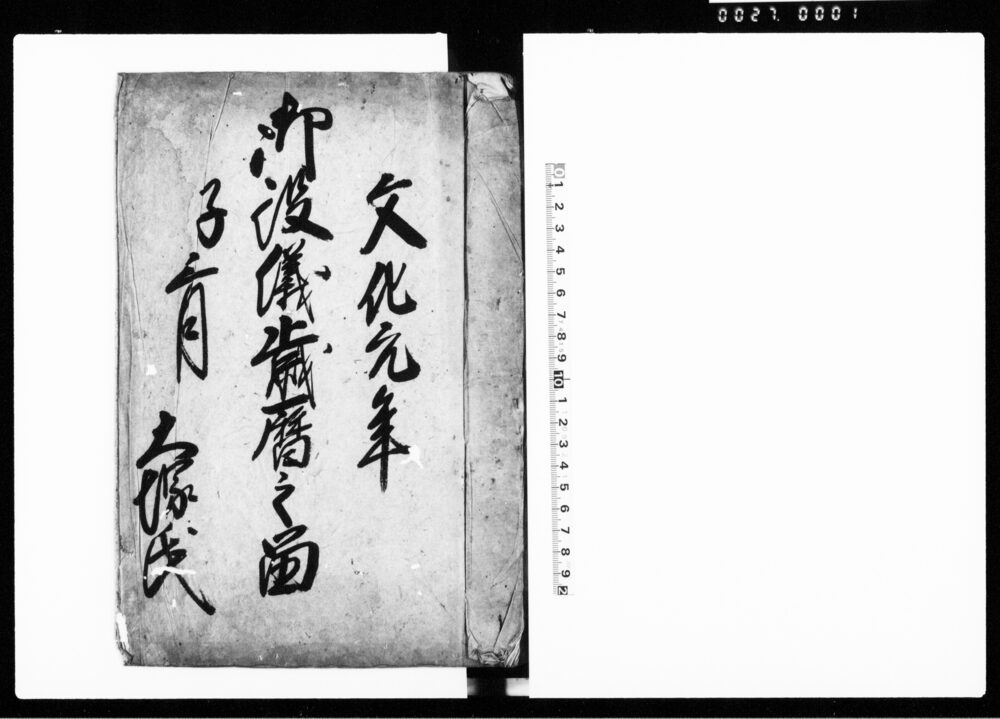 0027. 0001
文化元年
御役儀歳暦之
子 月
大塚氏
0 1 2 3 4 5 6 7 8 9 10 1 2 3 4 5 6 7 8 9 2